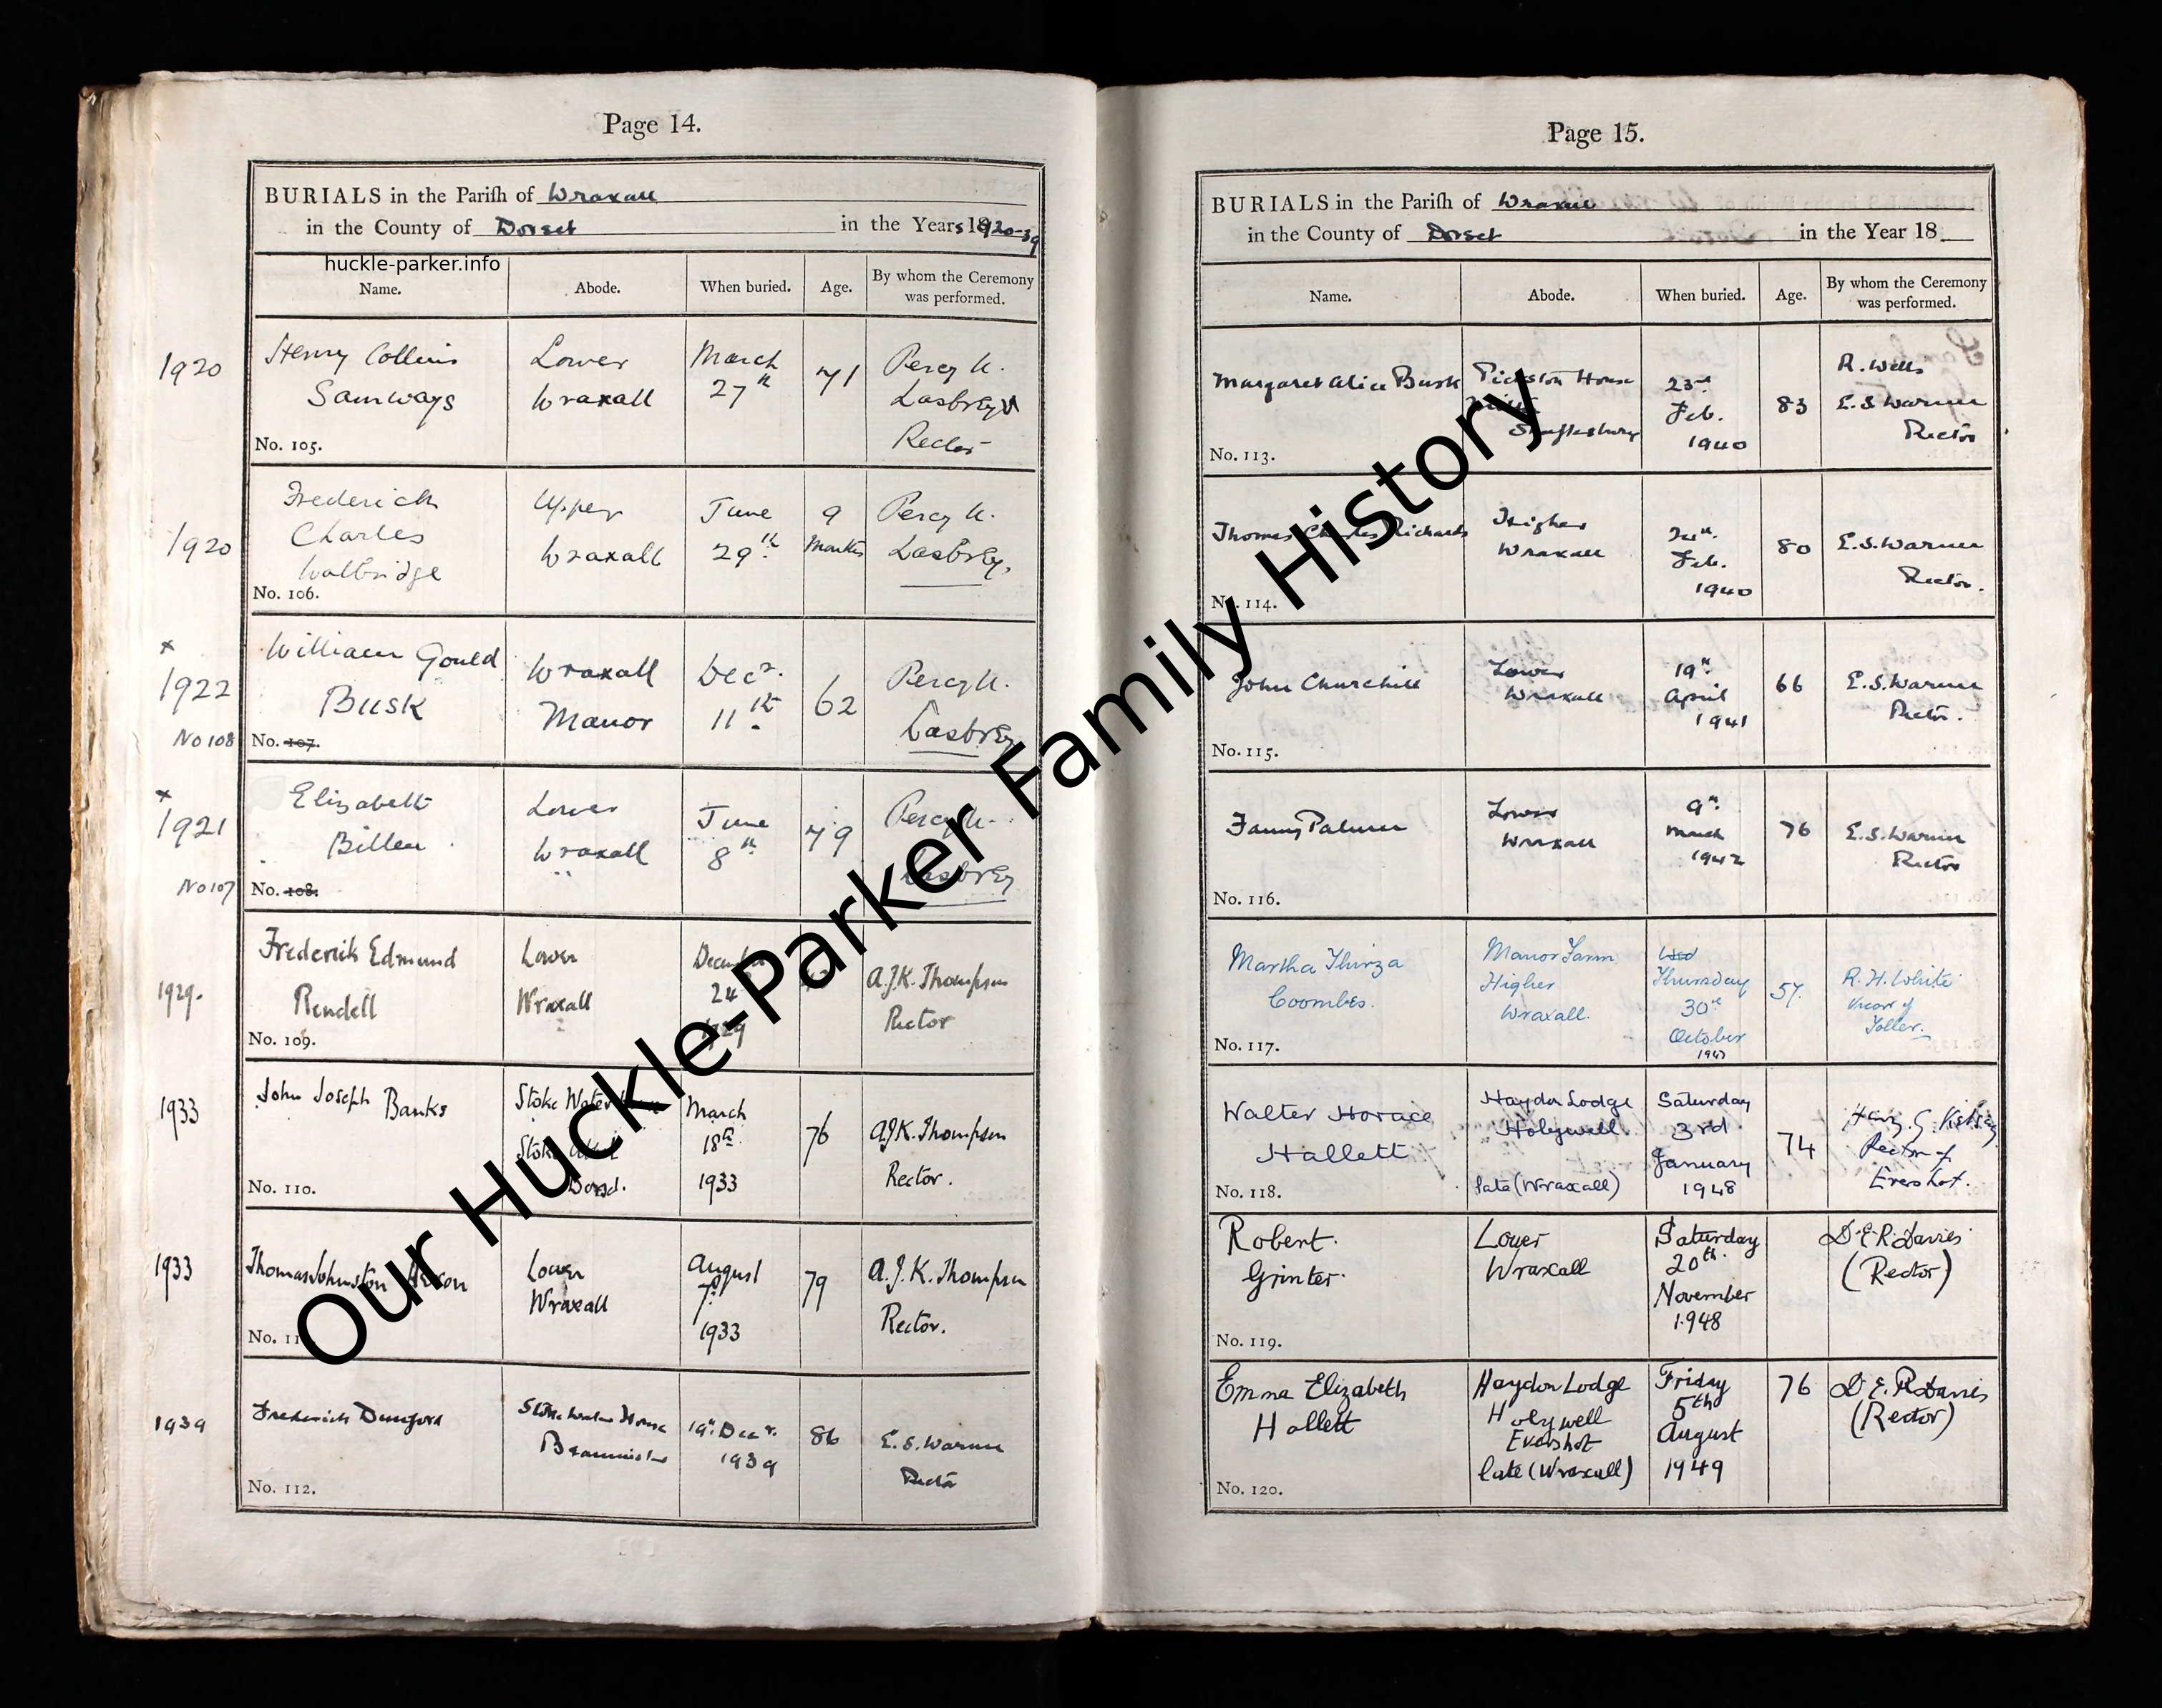 Page 14.
BURIALS in the Parish of Wraxall
in the County of Dorset in the Years 1920-39
huckle-parker.info
Name. Abode. When buried. Age. By whom the Ceremony was performed.
1920
Henry Collins Lower March 71 Percy U.
Samways Wraxall 27th Lasbrey
Rector
No. 105.
1920
Frederick Upper June 9 Percy U.
Charles Wraxall 29th Months Lasbrey.
Walbridge
No. 106.
x
1922
William Gould Wraxall Decr. 62 Percy U.
Busk Manor 11th Lasbrey
No 108 No. 107.
x
1921
Elizabeth Lower June 79 Percy U.
Billen Wraxall 8th Lasbrey
No 107 No. 108.
1929.
Frederick Edmund Lower December A.J.K. Thompson
Rendell Wraxall 24 Rector
1929
No. 109.
1933
John Joseph Banks Stoke Water March 76 A.J.K. Thompson
Stoke 18th Rector.
Dorset. 1933
No. 110.
1933
Thomas Johnston Lower August 79 A.J.K. Thompson
Wraxall 7th Rector.
1933
No. 11
1939
Frederick Dunford Stoke Water House 19th Decr. 86 E.S. Warner
Beaminster 1939 Rector
No. 112.
Page 15.
BURIALS in the Parish of Wraxall
in the County of Dorset in the Year 18
Name. Abode. When buried. Age. By whom the Ceremony was performed.
Margaret Alice Busk House 23rd 83 R. Wells
Shaftesbury Feb. E.S. Warner
1940 Rector
No. 113.
Thomas Charles Richards Higher 24th 80 E.S. Warner
Wraxall Feb. Rector.
1940
No. 114.
John Churchill Lower 19th 66 E.S. Warner
Wraxall April Rector.
1941
No. 115.
Fanny Palmer Lower 9th 76 E.S. Warner
Wraxall March Rector
1942
No. 116.
Martha Thirza Manor Farm Wed 57. R.H. White
Coombes. Higher Thursday Vicar of
Wraxall. 30th Toller.
October
1947
No. 117.
Walter Horace Haydon Lodge Saturday 74
Hallett Holywell. 3rd Rector of
late (Wraxall) January Evershot.
1948
No. 118.
Robert Lower Saturday D.E.R. Davies
Grinter. Wraxall 20th. (Rector)
November
1948
No. 119.
Emma Elizabeth Haydon Lodge Friday 76 D.E.R. Davies
Hallett Holywell 5th (Rector)
Evershot August
late (Wraxall) 1949
No. 120.
Our Huckle-Parker Family History